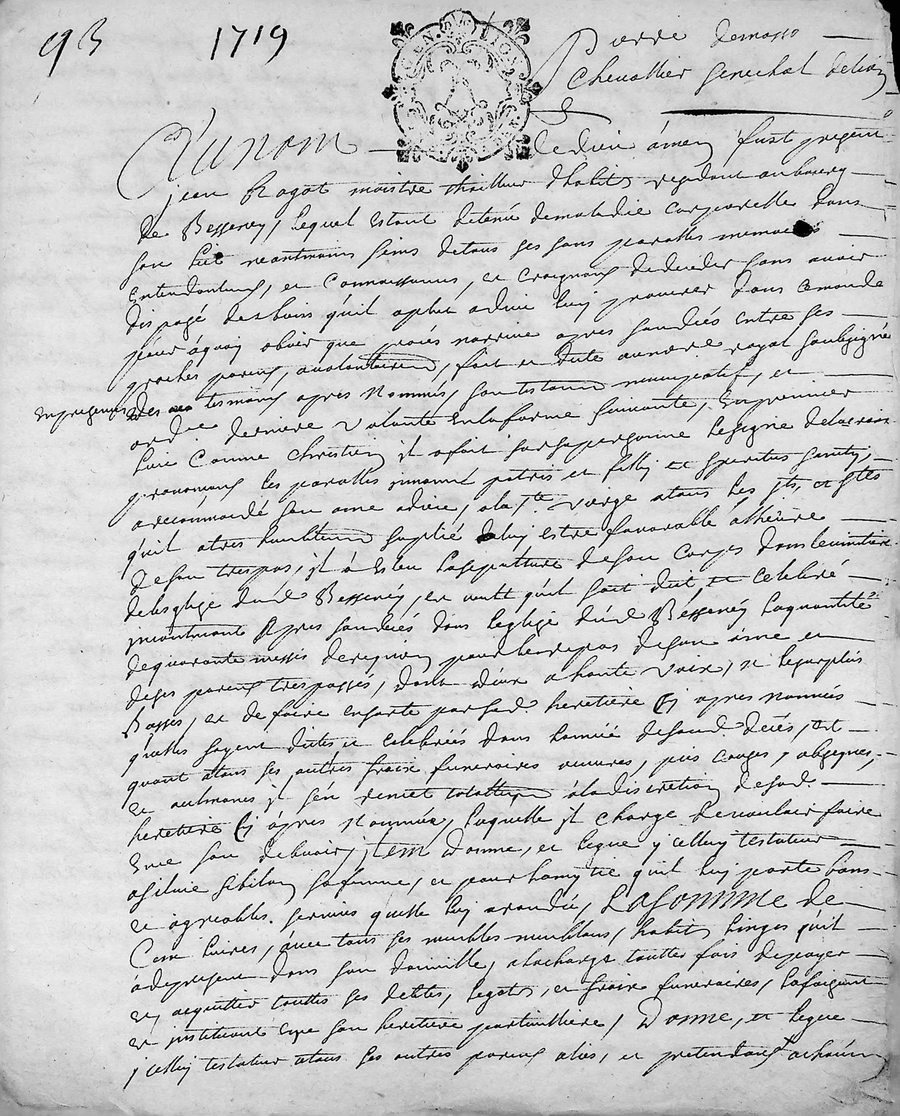 93 1719
Pierre demasso
Chevallier senechal de lion
GEN. DE LION
Au nom de dieu amen fust present
jean Ragot maistre thailleur dhabits residant au bourg
de Bessenay, lequel estant detenu de maladie corporelle dans
son lict neantmoins sains de tous ses sans parolles memoire
entendement, et connoissance, et craignans de deceder sans avoir
disposé des biens qu'il a pleu a dieu luy procurer dans ce monde
pour a quoy obvier que procés narrive apres son decés entre ses
proches parens, a volontairem fait et dicte au notre royal soubsigné
en presence des tesmoins apres nommés, son testam nuncupatif, et
derniere volonté en la forme suivante, En premier
lieu comme chrestien il a fait sur sa personne le signe de la croix
prononcant les parolles in nomine patris et filii et speritus sancti,
a recommandé son ame a dieu, a la ste vierge a tous les sts, et stes
qu'il a tres humblem suplié de luy estre favorable a lheure
de son trespas, il a esleu la sepulture de son corps dans le cimitiere
de lesglize dud Bessenay, et veult qu'il soit dit et celebré
apres son decés dans leglize dud Bessenay la quantité
de quarante messes de requiem pour le repos de son ame et
de ses parens trespassés, dont a haute voix, et le surplus
Basses, et de faire ensorte par sad. heretiere cy apres nommés
quelles soyent dictes et celebrées dans lannée de sond. decés, Et
quant a tous ses autres fraix funeraires
et aulmones il s'en remet a la discretion de sad.
heretiere cy apres nommée, laquelle il charge de vouloir faire
son debvoir, jtem donne, et legue jcelluy testateur
sa femme, et pour lamytié qu'il luy porte bons
et agreables services quelle luy a rendu, La somme de
Cent livres, avec tous ses meubles meublans, habits linges qu'il
a de present dans son domicille, a la charge toutte fois de payer
et acquitter touttes ses debtes, legats, et fraix funeraires, la faisant
et instituant son heretiere particulliere, Donne, et legue
jcelluy testateur a tous ses autres parens aliés, et pretendans